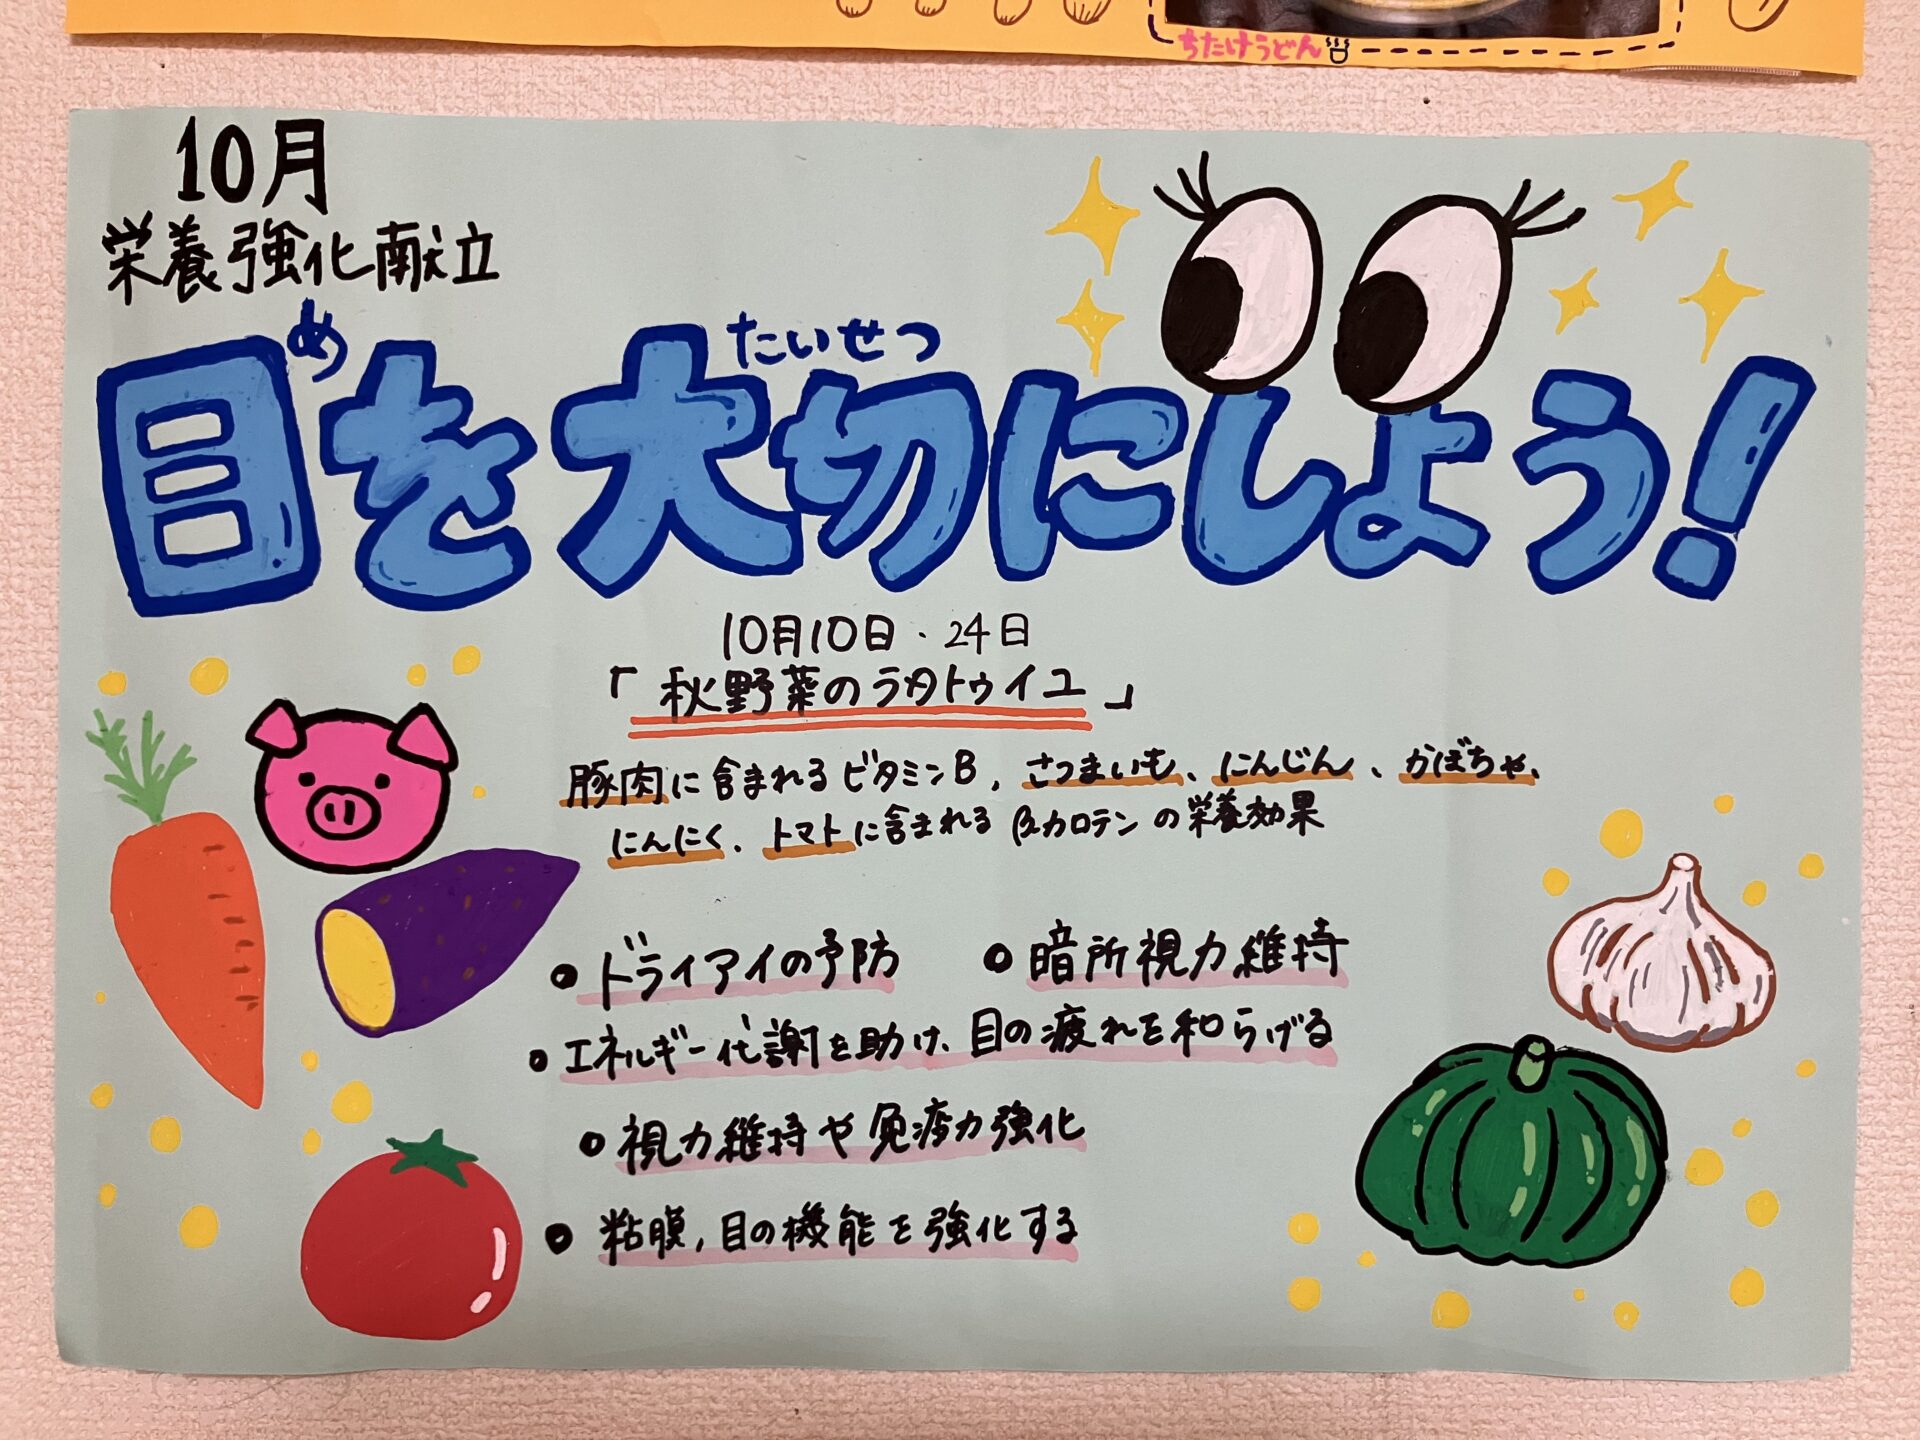 ちたけうどん
10月
栄養強化献立
め たいせつ
目を大切にしよう!
10月10日・24日
「秋野菜のラタトゥイユ」
豚肉に含まれるビタミンB、さつまいも、にんじん、かぼちゃ、
にんにく、トマトに含まれるβカロテンの栄養効果
ドライアイの予防 暗所視力維持
エネルギー代謝を助け、目の疲れを和らげる
視力維持や免疫力強化
粘膜,目の機能を強化する